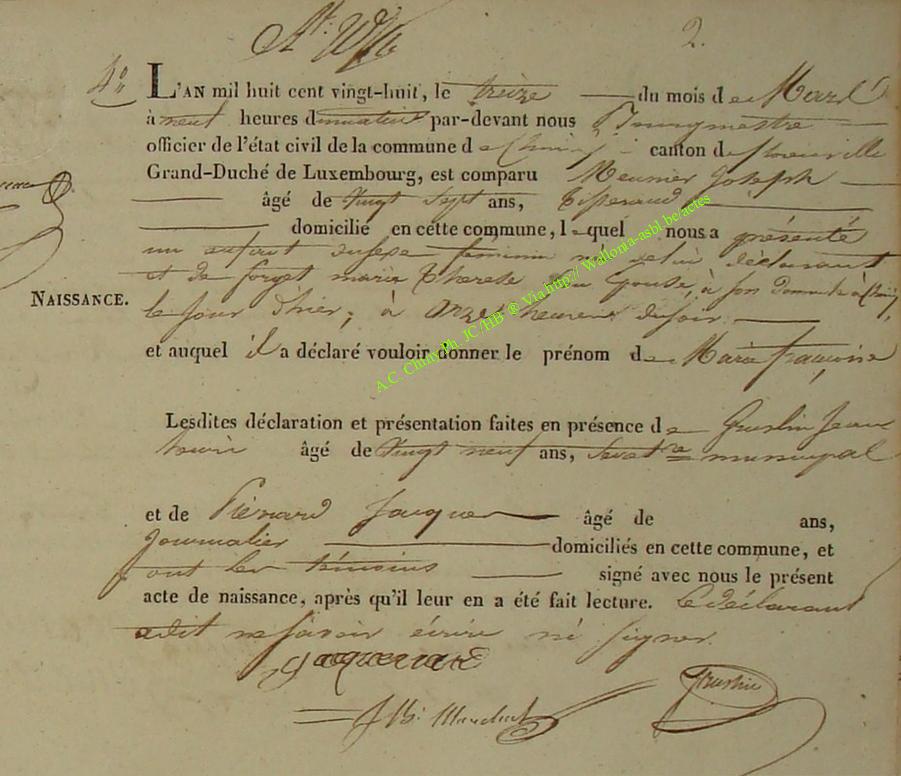 2.
4°
L'AN mil huit cent vingt-huit, le treize du mois de Mars
à neuf heures du matin par-devant nous Bourgmestre
officier de l'état civil de la commune de Chiny canton de florenville
Grand-Duché de Luxembourg, est comparu Meunier Joseph
âgé de vingt sept ans, tisserand
domicilié en cette commune, lequel nous a présenté
un enfant du sexe féminin né de lui déclarant
et de forget marie therese son épouse, à son domicile à Chiny,
NAISSANCE.
le jour d'hier, à onze heures du soir
et auquel il a déclaré vouloir donner le prénom de Marie françoise
Lesdites déclaration et présentation faites en présence de Jean
louis âgé de vingt neuf ans, Secret.re municipal
et de Piérard Jacques âgé de ans,
Journalier domiciliés en cette commune, et
ont les témoins signé avec nous le présent
acte de naissance, après qu'il leur en a été fait lecture. le déclarant
a dit ne savoir écrire ni signer.
A.C. Chiny Ph JC/HB ® Via http:// Wallonia-asbl.be/actes